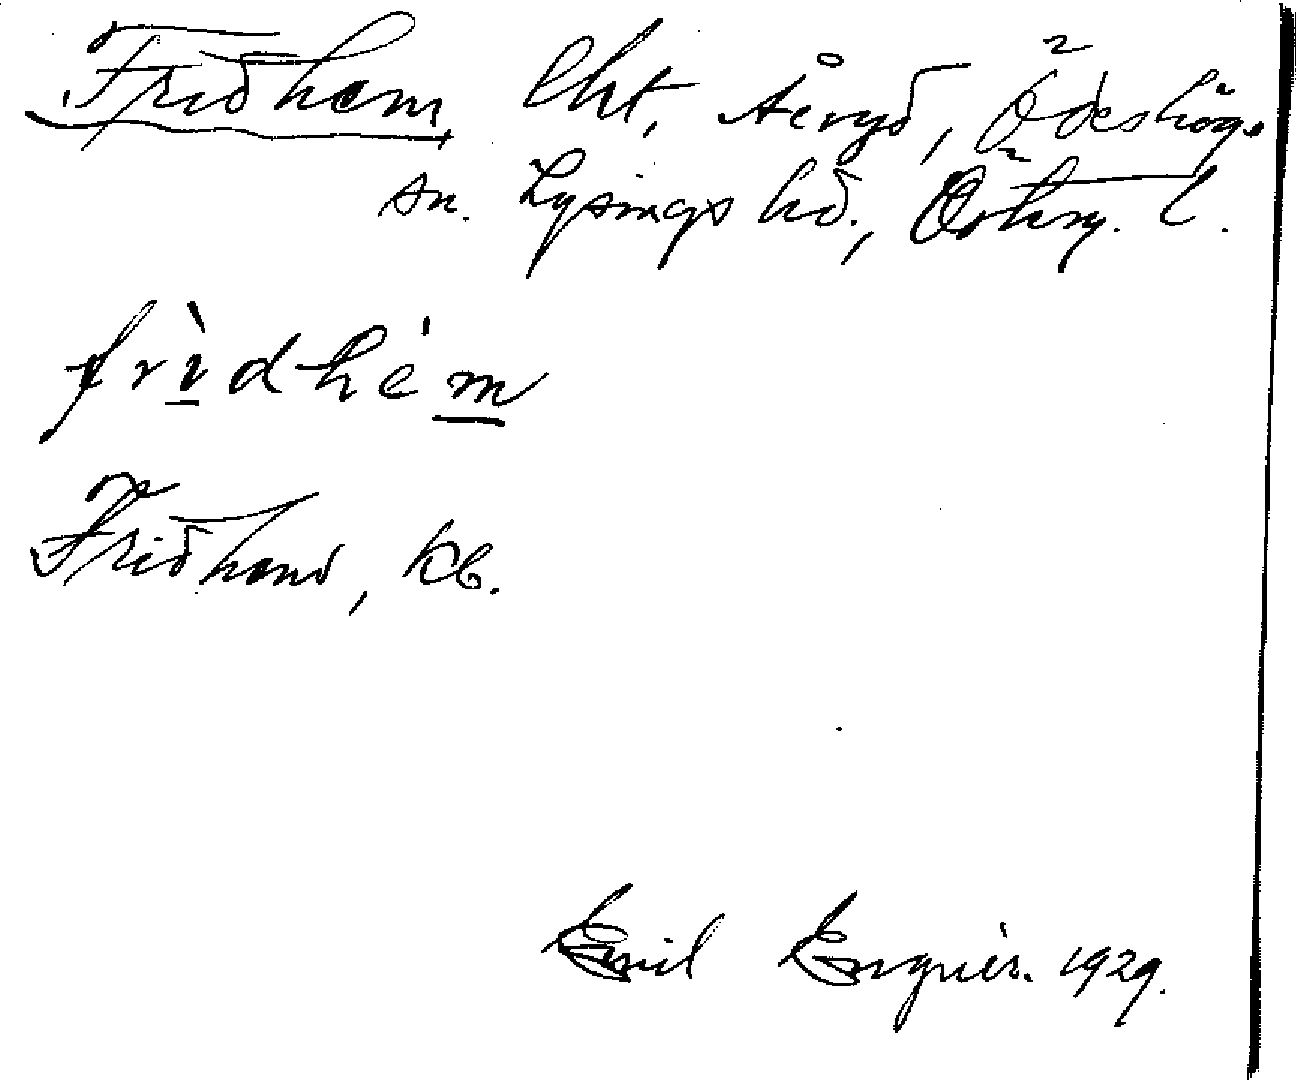 Fridhem, lht, Åeryd, Ödeshögs
sn. Lysings hd., Östérg. l.
frìdhém
Fridhem, Kb.
Emil Enqvist. 1929.